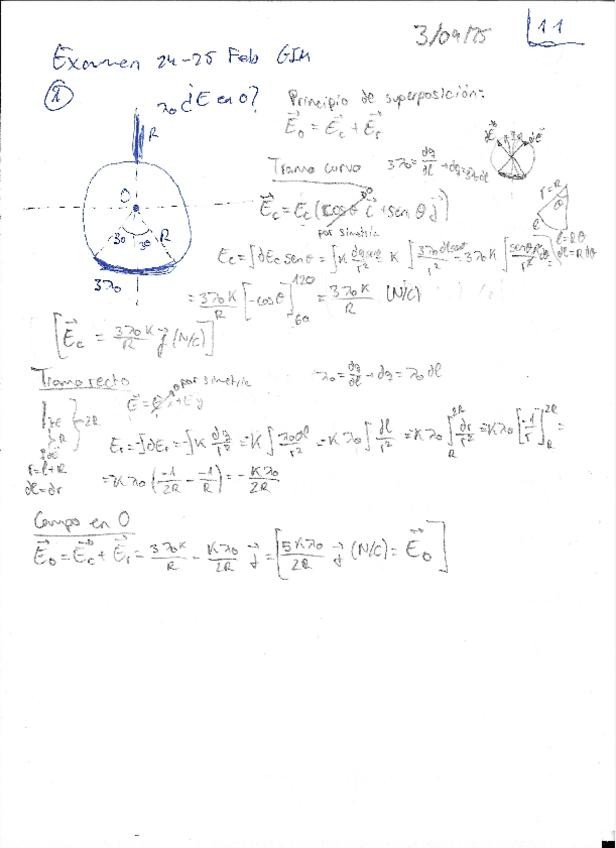 3/09/25
1 1
Examen 24-25 Feb GIM
① λ₀ ¿E en O?
Principio de superposición:
E⃗₀ = E⃗c + E⃗r
R
O
30 30 R
3λ₀
Tramo curvo 3λ₀ = dq/dl → dq = 3λ₀dl
E⃗c = Ec (cosθ i⃗ + sen θ j⃗)
por simetria
r=R
θ
l
l = Rθ
dl = R dθ
Ec = ∫dEc senθ = ∫K dq senθ/r² = K ∫ 3λ₀dl senθ/r² = 3λ₀K ∫ senθ R dθ/r² =
= 3λ₀K/R [-cosθ]₆₀¹²⁰ = 3λ₀K/R (N/C)
[E⃗c = 3λ₀K/R j⃗ (N/C)]
Tramo recto
λ₀ = dq/dl → dq = λ₀ dl
E⃗ = E⃗x + Ey por simetria
2R
R
r = l+R
dl = dr
Er = -∫dEr = -∫K dq/r² = -K ∫ λ₀dl/r² = -Kλ₀ ∫ dl/r² = -Kλ₀ ∫_R^2R dr/r² = -Kλ₀ [-1/r]_R^2R =
= -Kλ₀ (-1/2R - -1/R) = - Kλ₀/2R
Campo en O
E⃗₀ = E⃗c + E⃗r = 3λ₀K/R - Kλ₀/2R j⃗ = [5Kλ₀/2R j⃗ (N/C) = E⃗₀]